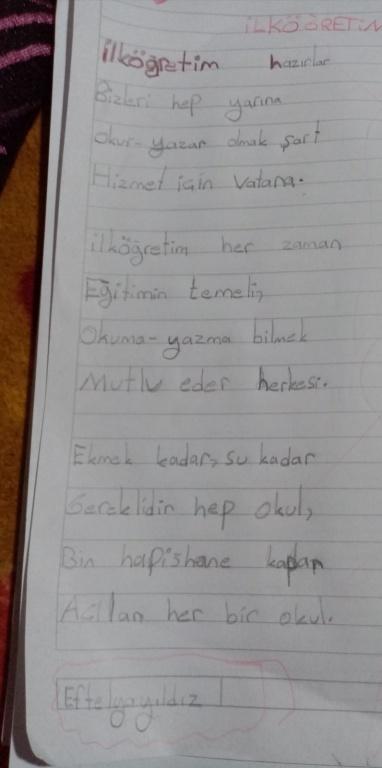 İLKÖĞRETİM
ilköğretim hazırlar
Bizleri hep yarına
Okur-yazar olmak şart
Hizmet için Vatana.
ilköğretim her zaman
Eğitimin temeli,
Okuma-yazma bilmek
Mutlu eder herkesi.
Ekmek kadar, su kadar
Gereklidir hep okul,
Bin hapishane kapan
Açılan her bir okul.
Eftelya yıldız